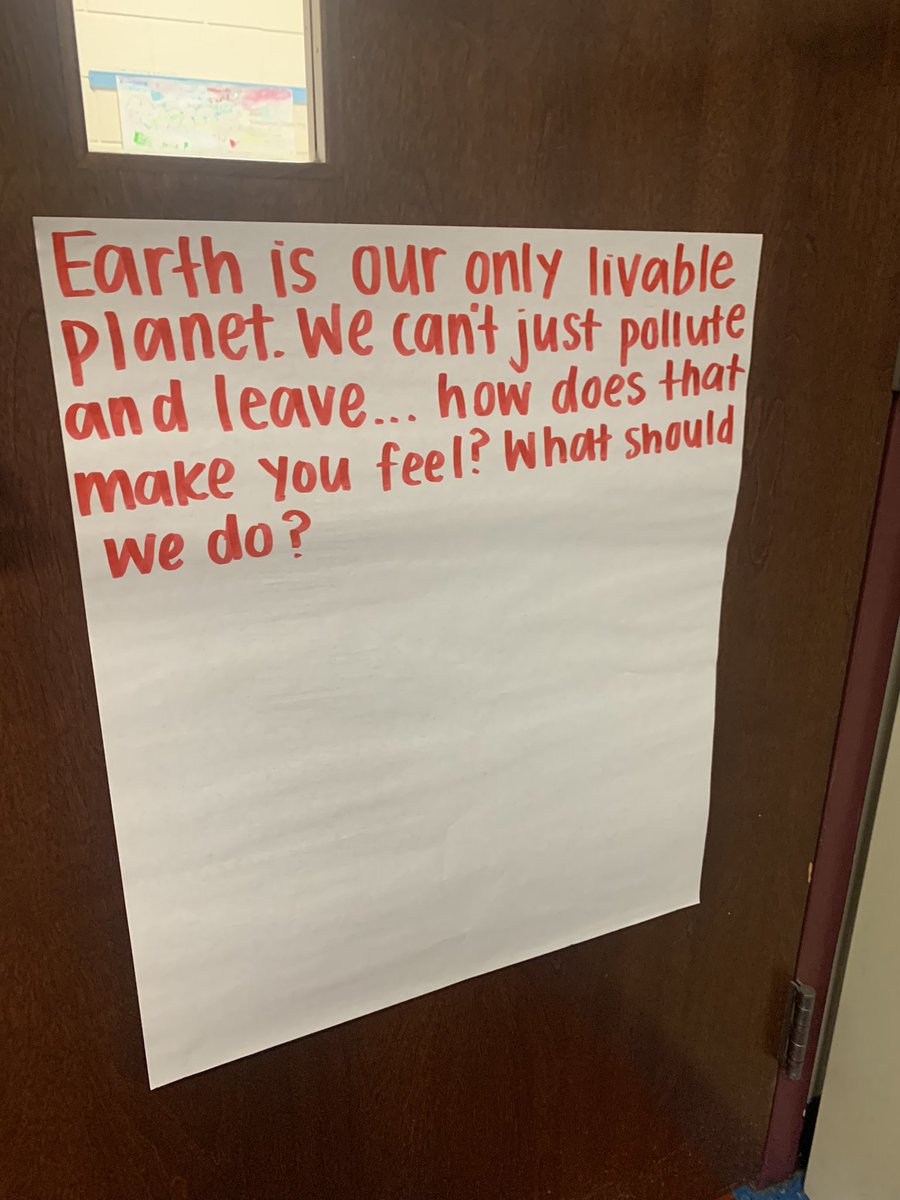 Earth is our only livable
planet. We can't just pollute
and leave... how does that
make you feel? What should
we do?